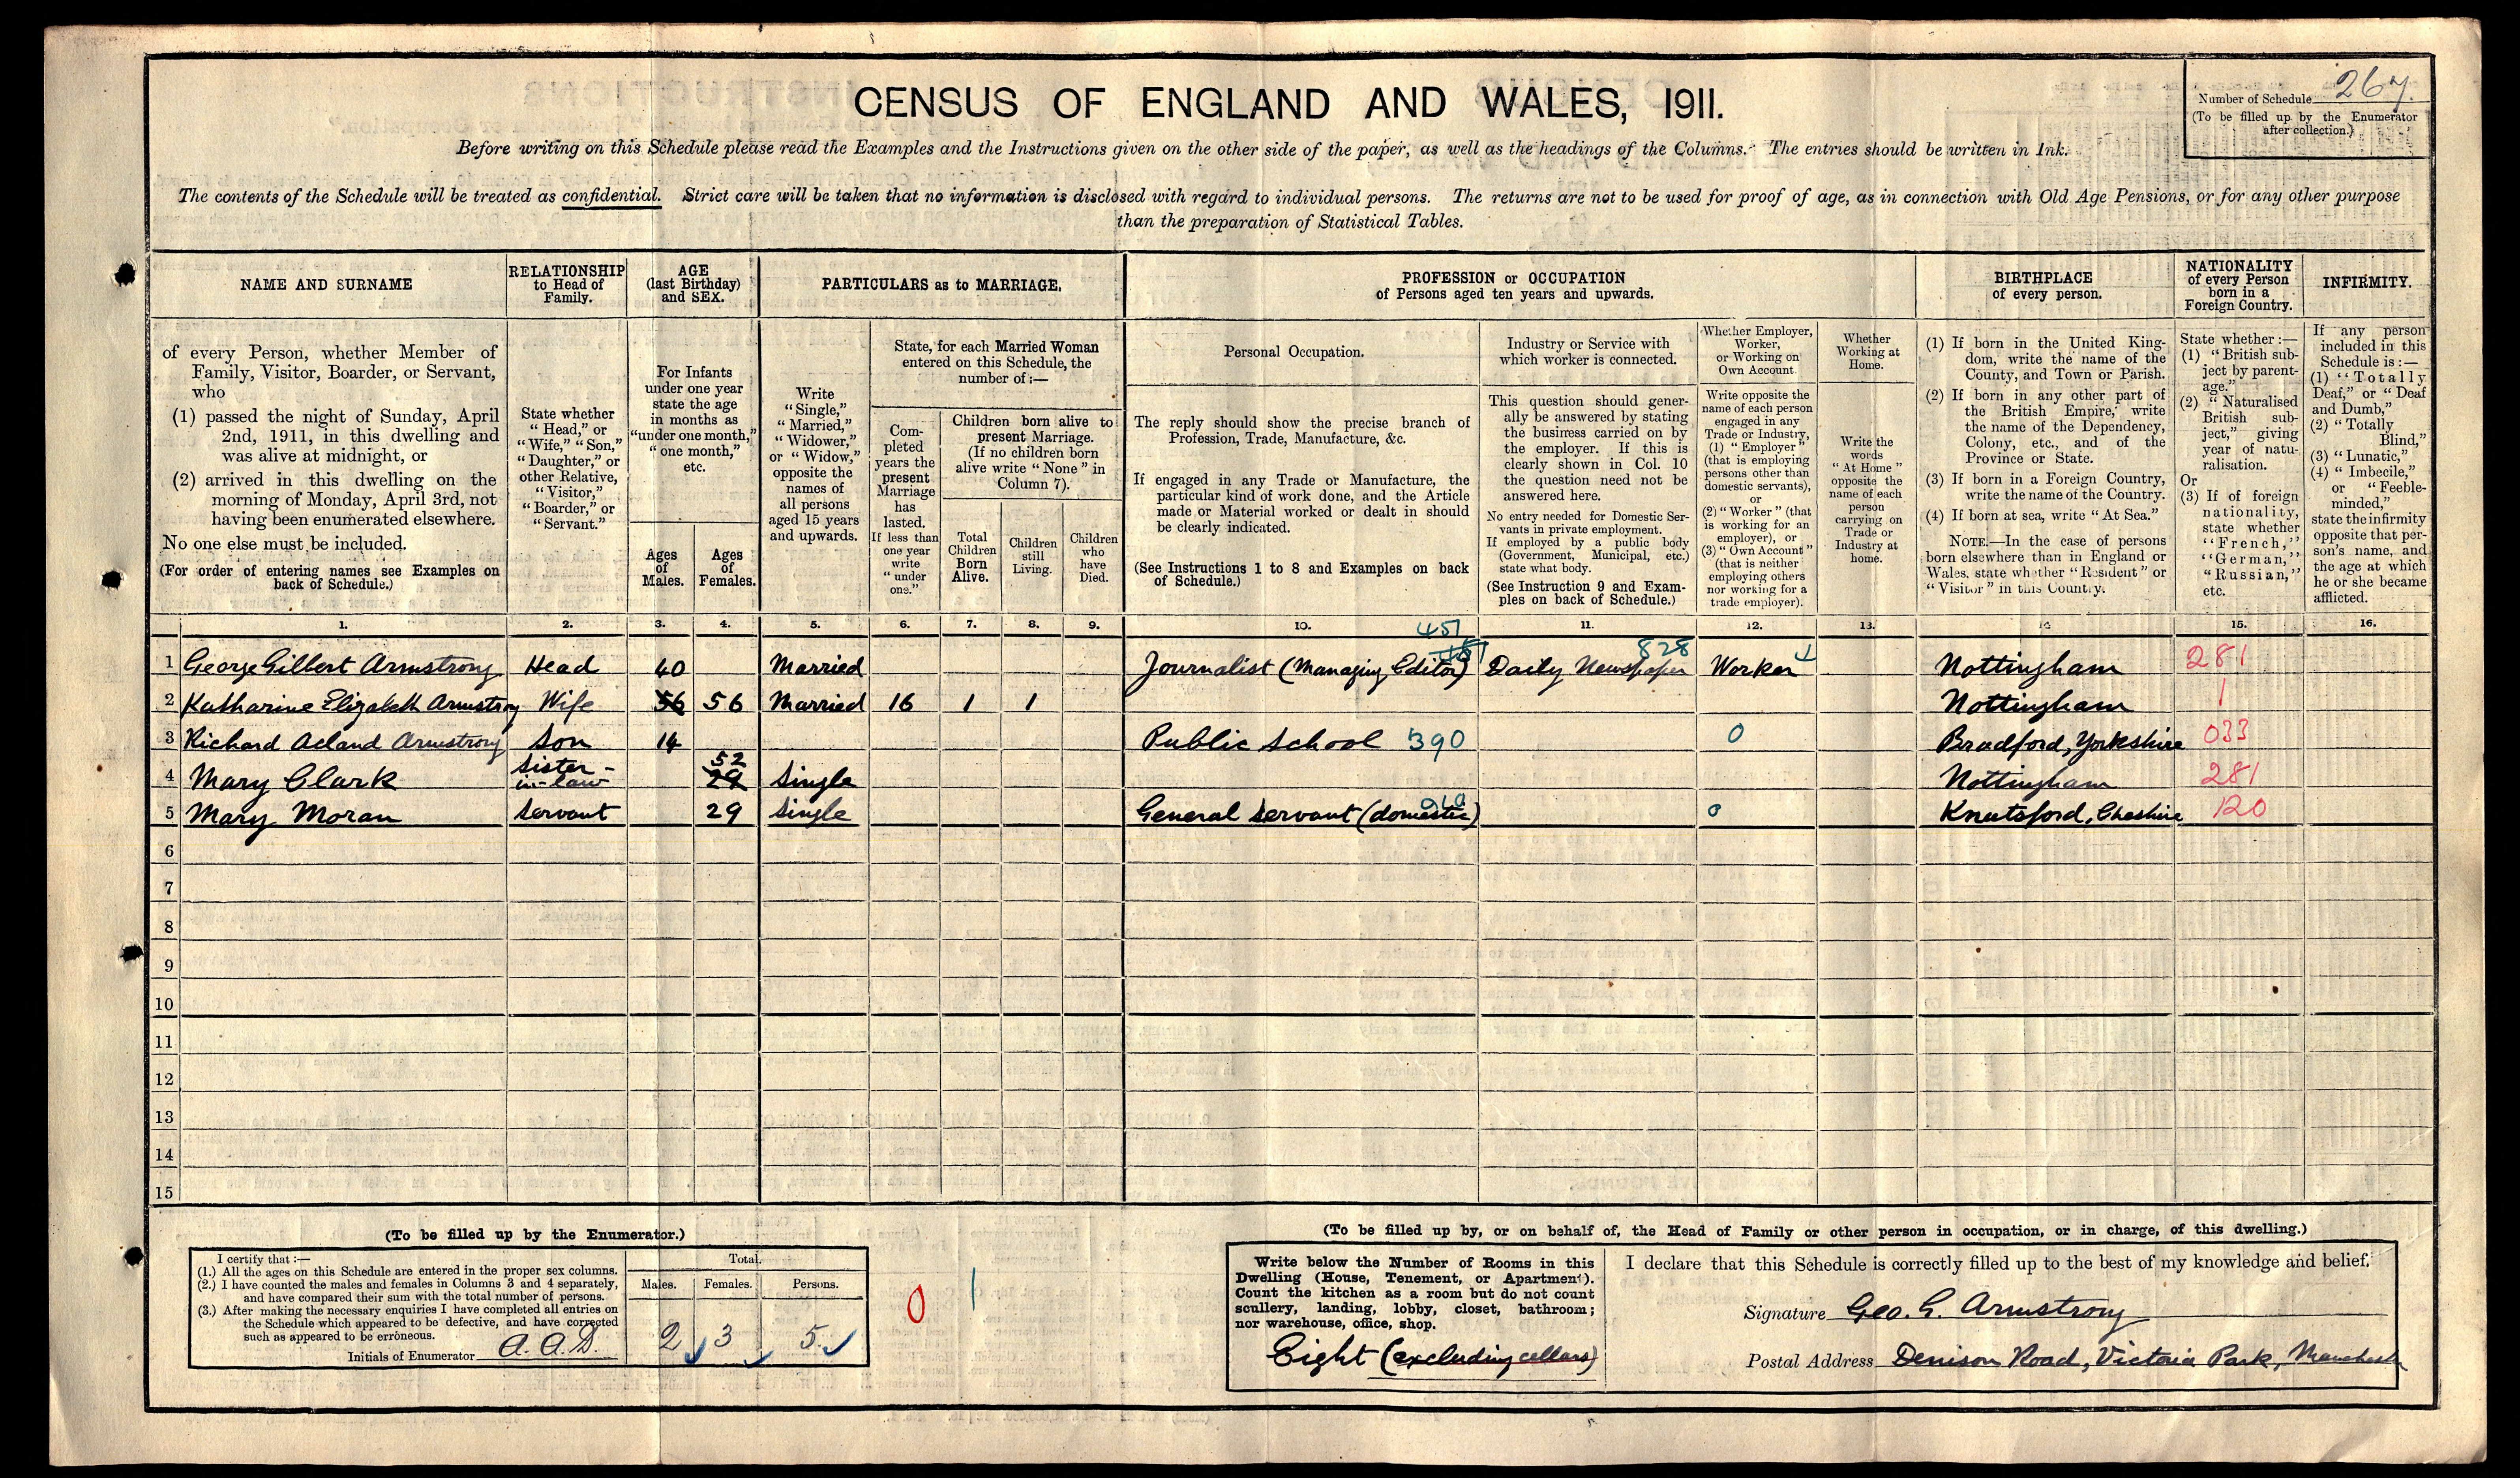 CENSUS OF ENGLAND AND WALES, 1911.
Number of Schedule 267.
(To be filled up by the Enumerator
after collection.)
Before writing on this Schedule please read the Examples and the Instructions given on the other side of the paper, as well as the headings of the Columns. The entries should be written in Ink.
The contents of the Schedule will be treated as confidential. Strict care will be taken that no information is disclosed with regard to individual persons. The returns are not to be used for proof of age, as in connection with Old Age Pensions, or for any other purpose
than the preparation of Statistical Tables.
NAME AND SURNAME
of every Person, whether Member of
Family, Visitor, Boarder, or Servant,
who
(1) passed the night of Sunday, April
2nd, 1911, in this dwelling and
was alive at midnight, or
(2) arrived in this dwelling on the
morning of Monday, April 3rd, not
having been enumerated elsewhere.
No one else must be included.
(For order of entering names see Examples on
back of Schedule.)
RELATIONSHIP
to Head of
Family.
State whether
"Head," or
"Wife," "Son,"
"Daughter," or
other Relative,
"Visitor,"
"Boarder," or
"Servant."
AGE
(last Birthday)
and SEX.
For Infants
under one year
state the age
in months as
"under one month,"
"one month,"
etc.
Ages
of
Males.
Ages
of
Females.
PARTICULARS as to MARRIAGE.
Write
"Single,"
"Married,"
"Widower,"
or "Widow,"
opposite the
names of
all persons
aged 15 years
and upwards.
State, for each Married Woman
entered on this Schedule, the
number of:—
Com-
pleted
years the
present
Marriage
has
lasted.
If less than
one year
write
"under
one."
Children born alive to
present Marriage.
(If no children born
alive write "None" in
Column 7).
Total
Children
Born
Alive.
Children
still
Living.
Children
who
have
Died.
PROFESSION or OCCUPATION
of Persons aged ten years and upwards.
Personal Occupation.
The reply should show the precise branch of
Profession, Trade, Manufacture, &c.
If engaged in any Trade or Manufacture, the
particular kind of work done, and the Article
made or Material worked or dealt in should
be clearly indicated.
(See Instructions 1 to 8 and Examples on back
of Schedule.)
Industry or Service with
which worker is connected.
This question should gener-
ally be answered by stating
the business carried on by
the employer. If this is
clearly shown in Col. 10
the question need not be
answered here.
No entry needed for Domestic Ser-
vants in private employment.
If employed by a public body
(Government, Municipal, etc.)
state what body.
(See Instruction 9 and Exam-
ples on back of Schedule.)
Whether Employer,
Worker,
or Working on
Own Account.
Write opposite the
name of each person
engaged in any
Trade or Industry,
(1) "Employer"
(that is employing
persons other than
domestic servants),
or
(2) "Worker" (that
is working for an
employer), or
(3) "Own Account"
(that is neither
employing others
nor working for a
trade employer).
Whether
Working at
Home.
Write the
words
"At Home"
opposite the
name of each
person
carrying on
Trade or
Industry at
home.
BIRTHPLACE
of every person.
(1) If born in the United King-
dom, write the name of the
County, and Town or Parish.
(2) If born in any other part of
the British Empire, write
the name of the Dependency,
Colony, etc., and of the
Province or State.
(3) If born in a Foreign Country,
write the name of the Country.
(4) If born at sea, write "At Sea."
NOTE.—In the case of persons
born elsewhere than in England or
Wales, state whether "Resident" or
"Visitor" in this Country.
NATIONALITY
of every Person
born in a
Foreign Country.
State whether:—
(1) "British sub-
ject by parent-
age."
(2) "Naturalised
British sub-
ject," giving
year of natu-
ralisation.
Or
(3) If of foreign
nationality,
state whether
"French,"
"German,"
"Russian,"
etc.
INFIRMITY.
If any person
included in this
Schedule is:—
(1) "Totally
Deaf," or "Deaf
and Dumb,"
(2) "Totally
Blind,"
(3) "Lunatic,"
(4) "Imbecile,"
or "Feeble-
minded,"
state the infirmity
opposite that per-
son's name, and
the age at which
he or she became
afflicted.
1. 2. 3. 4. 5. 6. 7. 8. 9. 10. 11. 12. 13. 14 15. 16.
451
1 George Gilbert Armstrong Head 40 Married Journalist (Managing Editor) Daily Newspaper 828 Worker Nottingham 281
2 Katharine Elizabeth Armstrong Wife 56 56 Married 16 1 1 Nottingham 1
3 Richard Acland Armstrong Son 14 Public School 390 0 Bradford, Yorkshire 033
4 Mary Clark Sister-in-law 52 29 Single Nottingham 281
5 Mary Moran Servant 29 Single General Servant (domestic) 0 Knutsford, Cheshire 120
6
7
8
9
10
11
12
13
14
15
(To be filled up by the Enumerator.)
I certify that:—
(1.) All the ages on this Schedule are entered in the proper sex columns.
(2.) I have counted the males and females in Columns 3 and 4 separately,
and have compared their sum with the total number of persons.
(3.) After making the necessary enquiries I have completed all entries on
the Schedule which appeared to be defective, and have corrected
such as appeared to be erroneous.
Initials of Enumerator A. A. D.
Total.
Males. Females. Persons.
2 3 5
0 1
(To be filled up by, or on behalf of, the Head of Family or other person in occupation, or in charge, of this dwelling.)
Write below the Number of Rooms in this
Dwelling (House, Tenement, or Apartment).
Count the kitchen as a room but do not count
scullery, landing, lobby, closet, bathroom;
nor warehouse, office, shop.
Eight (excluding cellars)
I declare that this Schedule is correctly filled up to the best of my knowledge and belief.
Signature Geo. G. Armstrong
Postal Address Denison Road, Victoria Park, Manchester